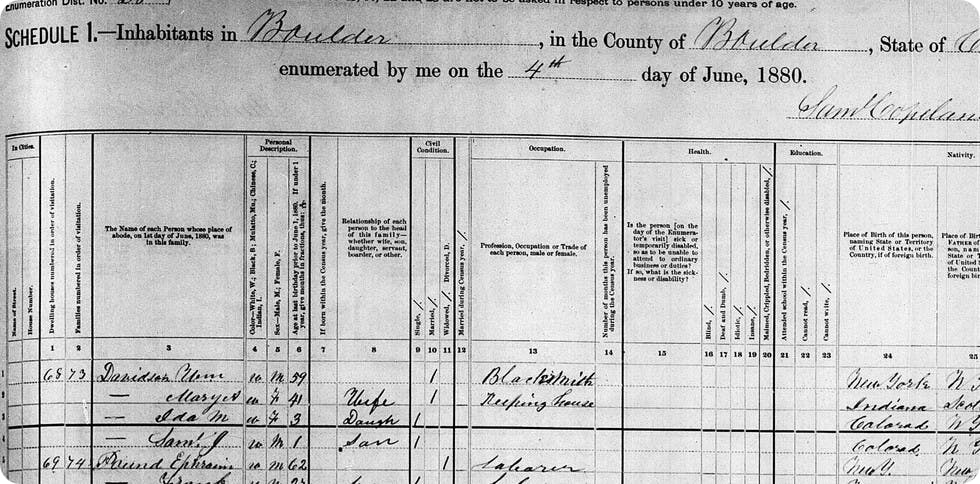 Enumeration Dist. No.
not to be asked in respect to persons under 10 years of age.
SCHEDULE 1.—Inhabitants in Boulder, in the County of Boulder, State of
enumerated by me on the 4th day of June, 1880.
Saml Copelan
In Cities. Personal Description. Civil Condition. Occupation. Health. Education. Nativity.
Name of Street.
House Number.
Dwelling houses numbered in order of visitation.
Families numbered in order of visitation.
The Name of each Person whose place of abode, on 1st day of June, 1880, was in this family.
Color—White, W.; Black, B.; Mulatto, Mu.; Chinese, C.; Indian, I.
Sex—Male, M.; Female, F.
Age at last birthday prior to June 1, 1880. If under 1 year, give months in fractions, thus:
If born within the Census year, give the month.
Relationship of each person to the head of this family—whether wife, son, daughter, servant, boarder, or other.
Single, /.
Married, /.
Widowed, /. Divorced, D.
Married during Census year, /.
Profession, Occupation or Trade of each person, male or female.
Number of months this person has been unemployed during the Census year.
Is the person [on the day of the Enumerator's visit] sick or temporarily disabled, so as to be unable to attend to ordinary business or duties? If so, what is the sickness or disability?
Blind, /.
Deaf and Dumb, /.
Idiotic, /.
Insane, /.
Maimed, Crippled, Bedridden, or otherwise disabled, /.
Attended school within the Census year, /.
Cannot read, /.
Cannot write, /.
Place of Birth of this person, naming State or Territory of United States, or the Country, if of foreign birth.
Place of Bir
FATHER
1 2 3 4 5 6 7 8 9 10 11 12 13 14 15 16 17 18 19 20 21 22 23 24 25
1 68 73 Davidson Wm w M 59 1 Blacksmith New York N.
2 — Mary A w F 41 Wife 1 Keeping house Indiana
3 — Ida M w F 3 Daugh 1 Colorad N Y
4 — Saml J w M 1 Son 1 Colorad N.
5 69 74 Ephraim w M 62 1 Laborer New Y. New